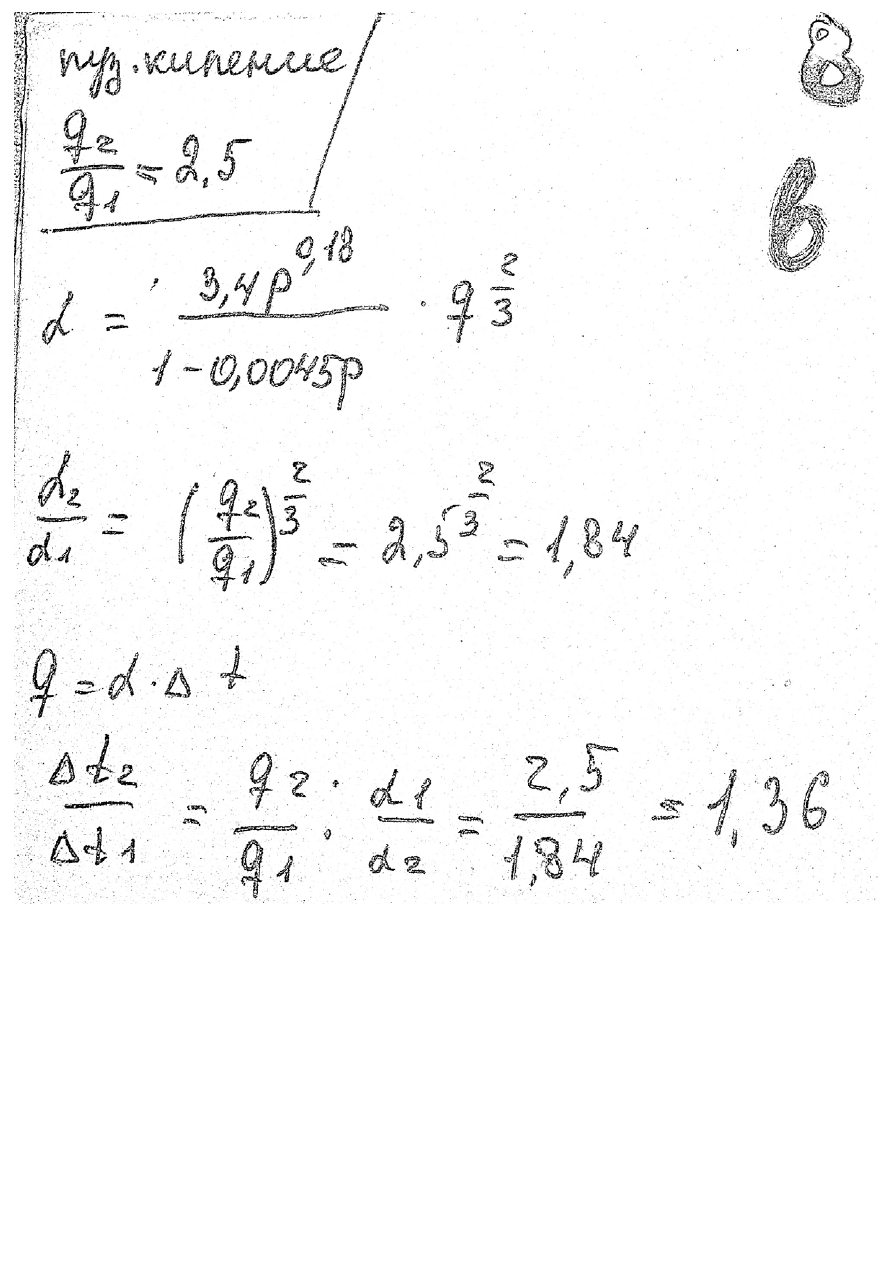 8
пуз. кипение
q₂/q₁ = 2,5
6
α = 3,4p^0,18 / (1 - 0,0045p) · q^(2/3)
α₂/α₁ = (q₂/q₁)^(2/3) = 2,5^(2/3) = 1,84
q = α · Δt
Δt₂/Δt₁ = q₂/q₁ : α₁/α₂ = 2,5/1,84 = 1,36